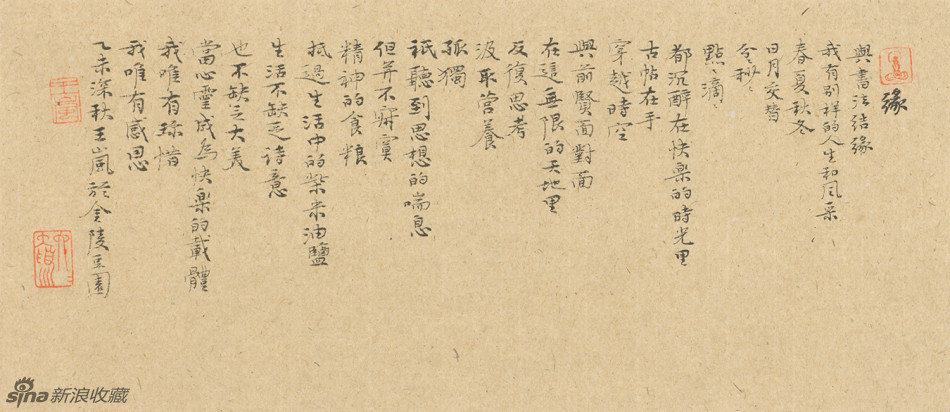 緣
與書法結緣
我有別样的人生和风采
春夏秋冬
日月交替
分秒〻
點〻滴〻
都沉醉在快樂的時光里
古帖在手
穿越時空
與前賢面對面
在這無限的天地里
反復思考
汲取營養
孤獨
祇聽到思想的喘息
但并不寂寞
精神的食粮
抵過生活中的柴米油鹽
生活不缺乏诗意
也不缺乏大美
當心靈成為快樂的載體
我唯有珍惜
我唯有感恩
乙未深秋王嵐於金陵豆園
sina新浪收藏